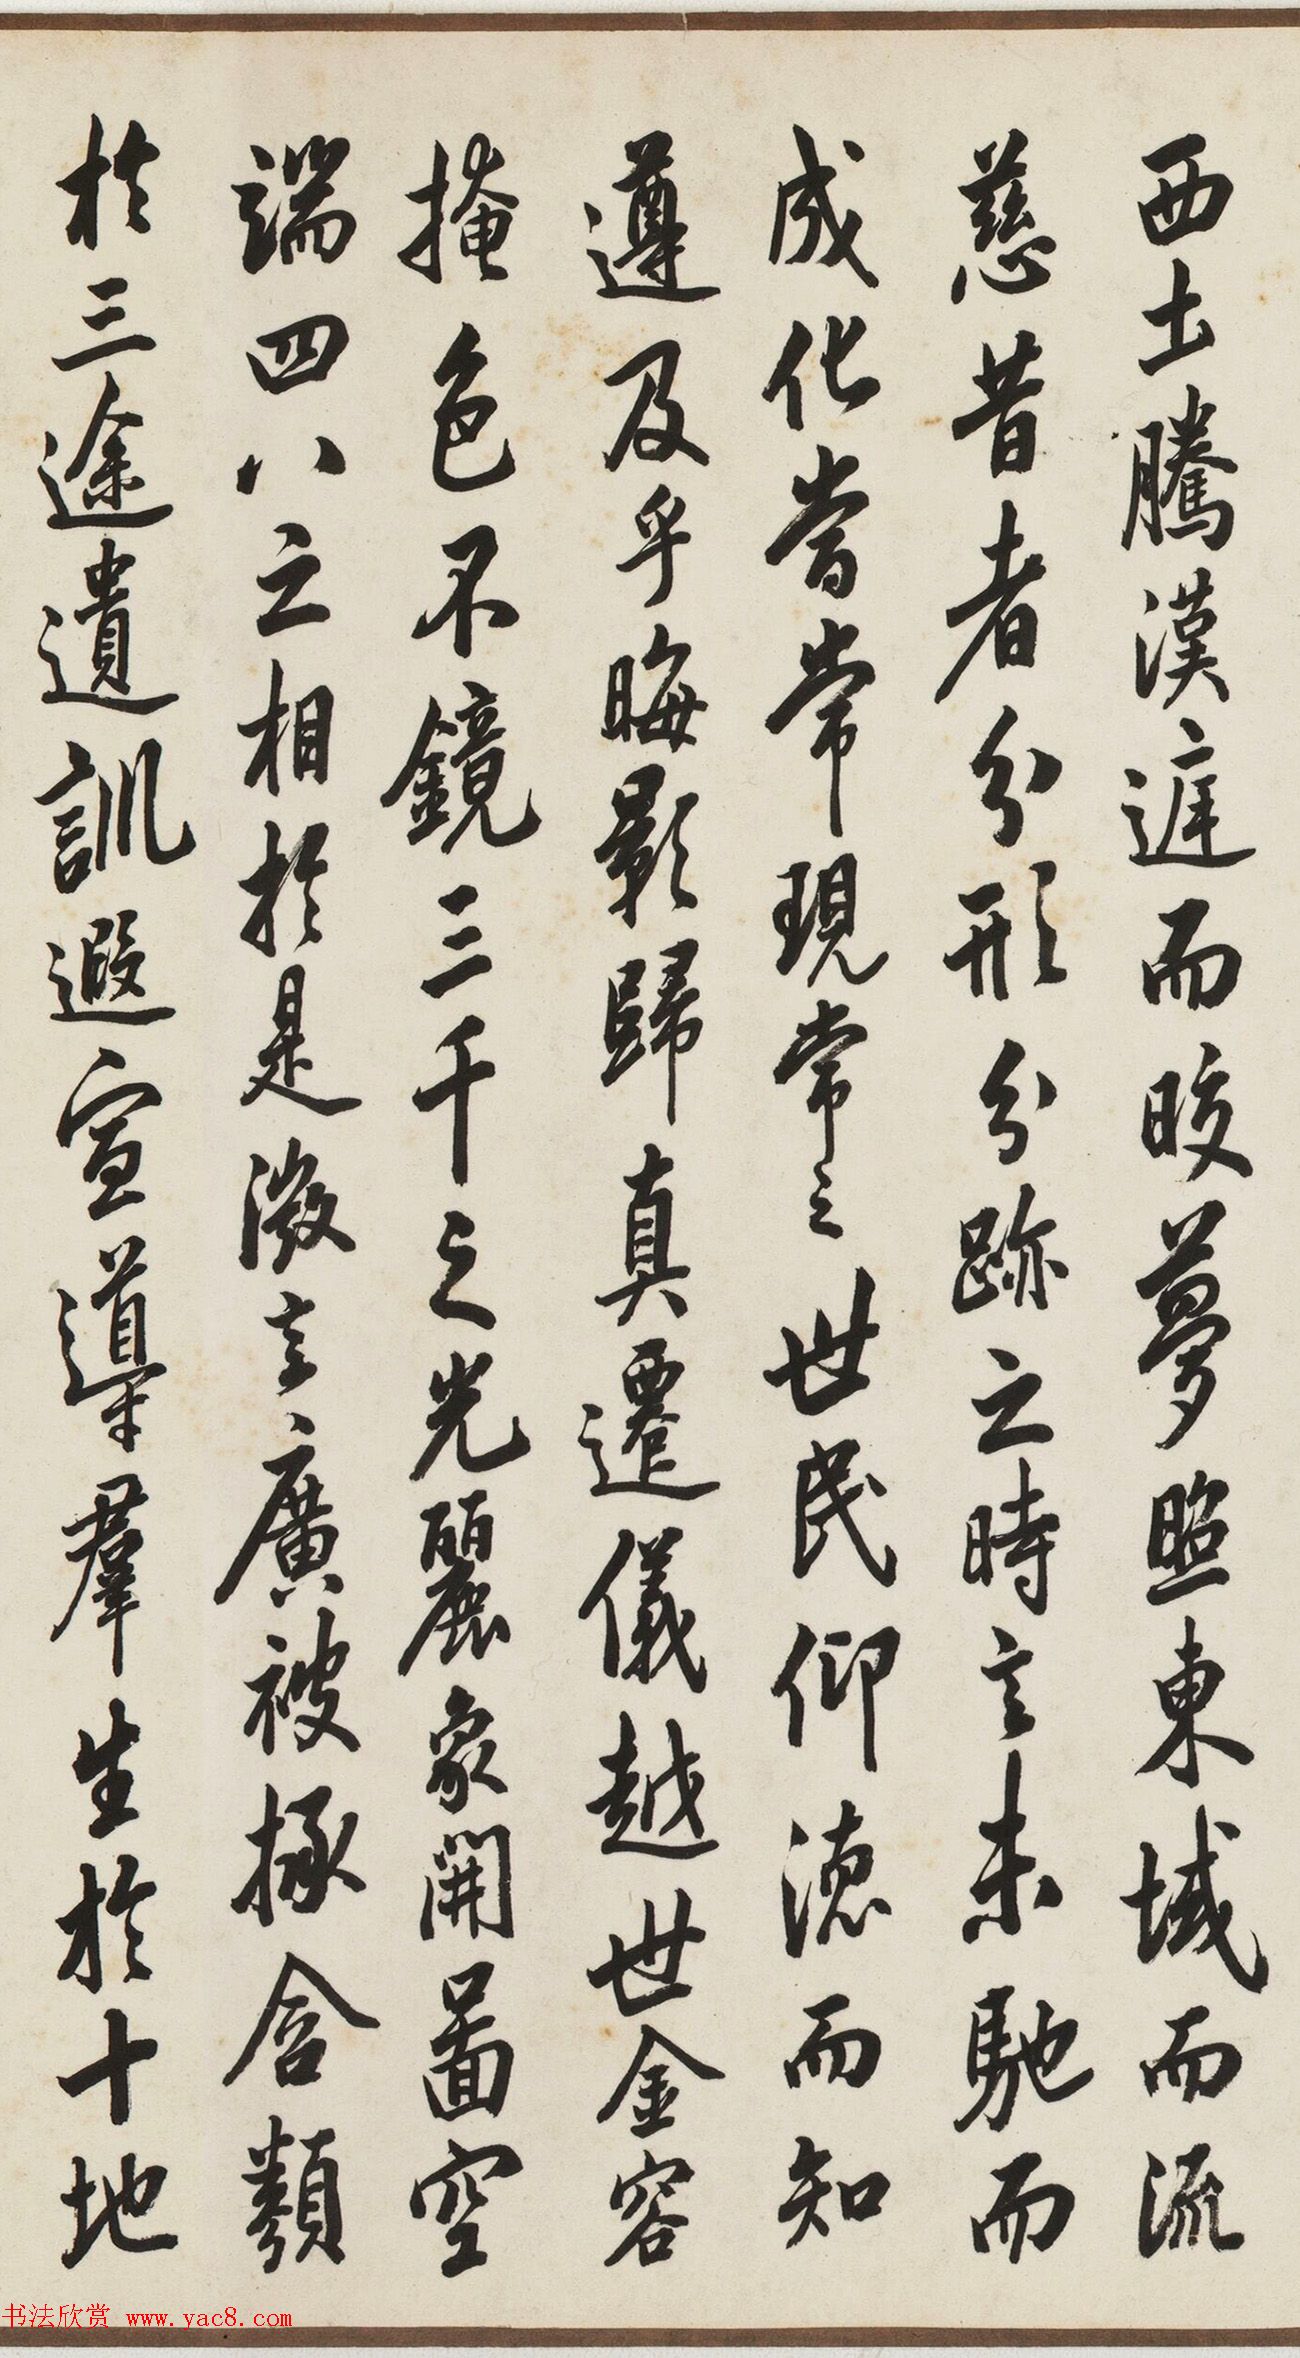 西土騰漢遅而皎夢照東域而流
慈昔者分形分跡之時言未馳而
成化當常現常之世民仰德而知
遵及乎晦影歸真遷儀越世金容
掩色不鏡三千之光麗象開啚空
端四八之相於是微言廣被拯含類
於三途遺訓遐宣導羣生於十地
书法欣赏 www.yac8.com